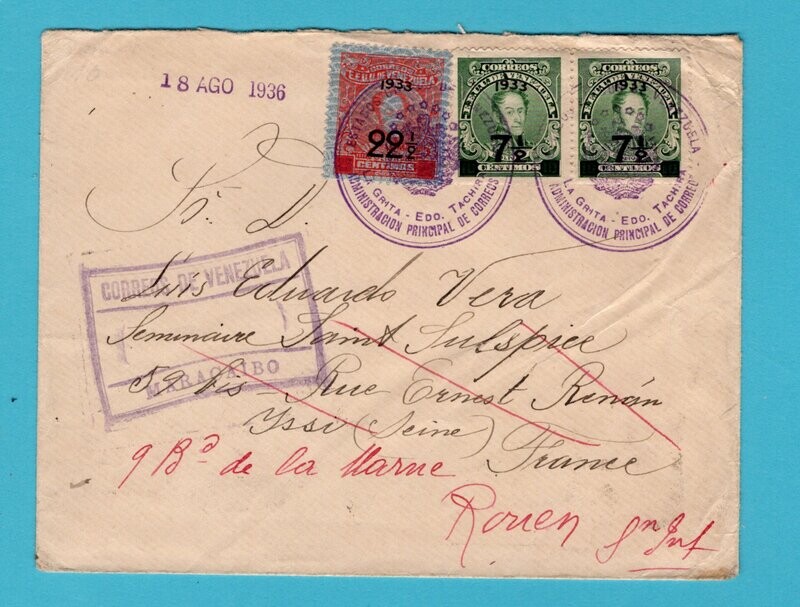 18 AGO 1936
CORREOS
E.E.U.U. DE VENEZUELA
1933
22 1/2
CENTIMOS
CORREOS
E.E.U.U. DE VENEZUELA
1933
7 1/2
CENTIMOS
CORREOS
E.E.U.U. DE VENEZUELA
1933
7 1/2
CENTIMOS
LA GRITA - EDO. TACHIRA
ADMINISTRACION PRINCIPAL DE CORREOS
VENEZUELA
LA GRITA - EDO. TACHIRA
ADMINISTRACION PRINCIPAL DE CORREOS
Sr. D.
CORREOS DE VENEZUELA
MARACAIBO
Luis Eduardo Vera
Seminaire Saint Sulspice
59 bis - Rue Ernest Renán
Yssi (Seine) France
9 Bd de la Marne
Rouen Sn Inf